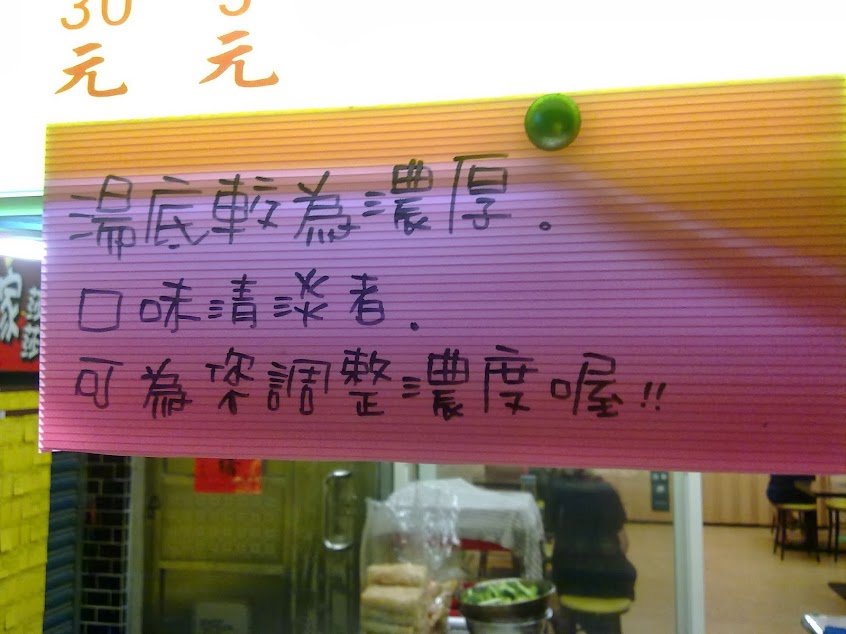 30元
元
湯底較為濃厚。
口味清談者.
可為您調整濃度喔!!
家